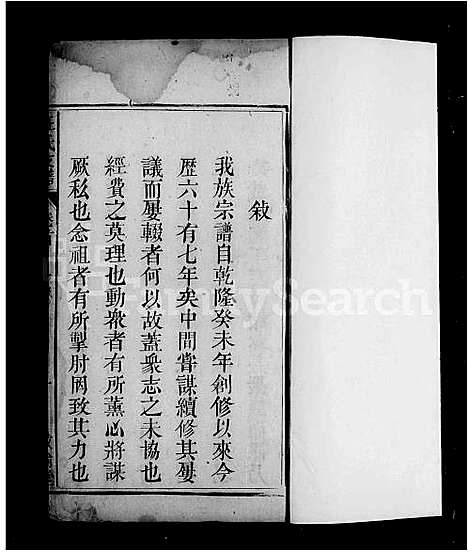 敘
我族宗譜自乾隆癸未年創修以來今
歷六十有七年矣中間嘗謀續修其屢
議而屢輟者何以故蓋衆志之未協也
經費之莫理也動衆者有所薰心將謀
厥私也念祖者有所掣肘罔致其力也
FamilySearch